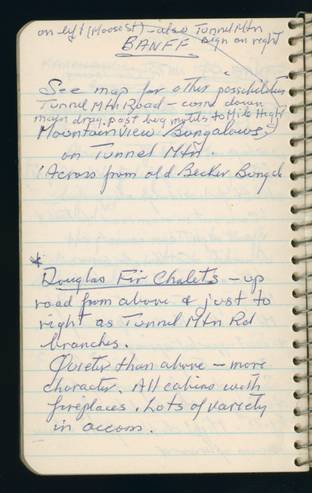 on left (Moose St) - also Tunnel Mtn
BANFF sign on right
See map for other possibilities
Tunnel Mtn Road - come down
main drag, past big motels to Mile High
Mountain View Bungalows,
on Tunnel Mtn.
(Across from old Becker Bungal
* Douglas Fir Chalets - up
road from above & just to
right as Tunnel Mtn Rd
branches.
Quieter than above - more
character. All cabins with
fireplaces. Lots of variety
in accom.